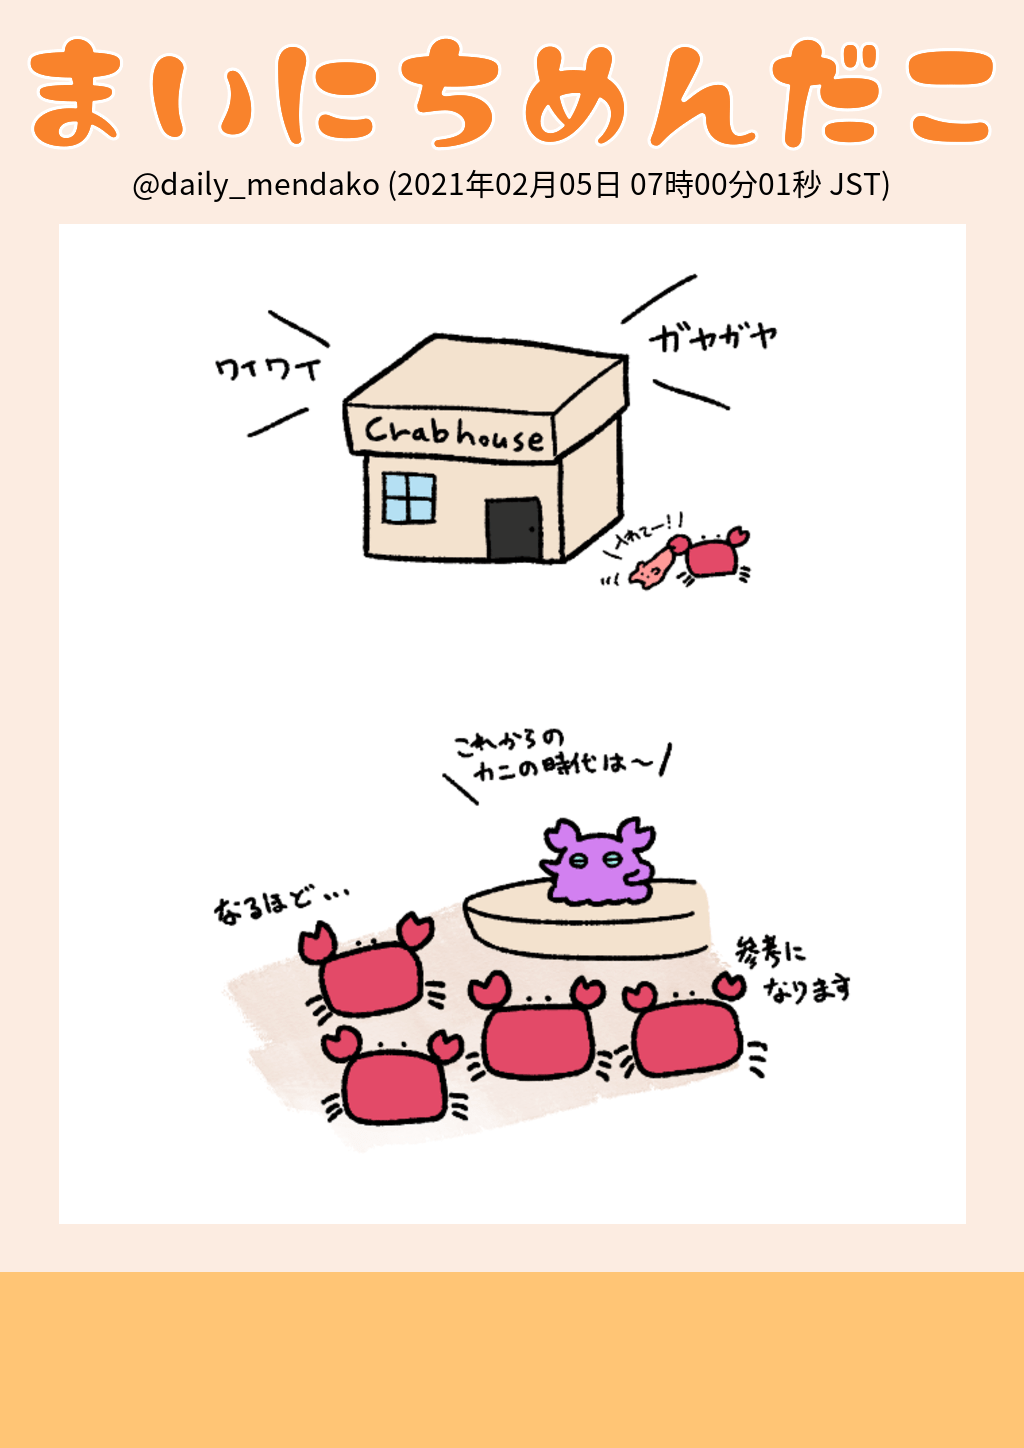 まいにちめんだこ
@daily_mendako (2021年02月05日 07時00分01秒 JST)
ワイワイ
ガヤガヤ
Crab house
入れてー!!
これからの
カニの時代は〜
なるほど…
参考に
なります